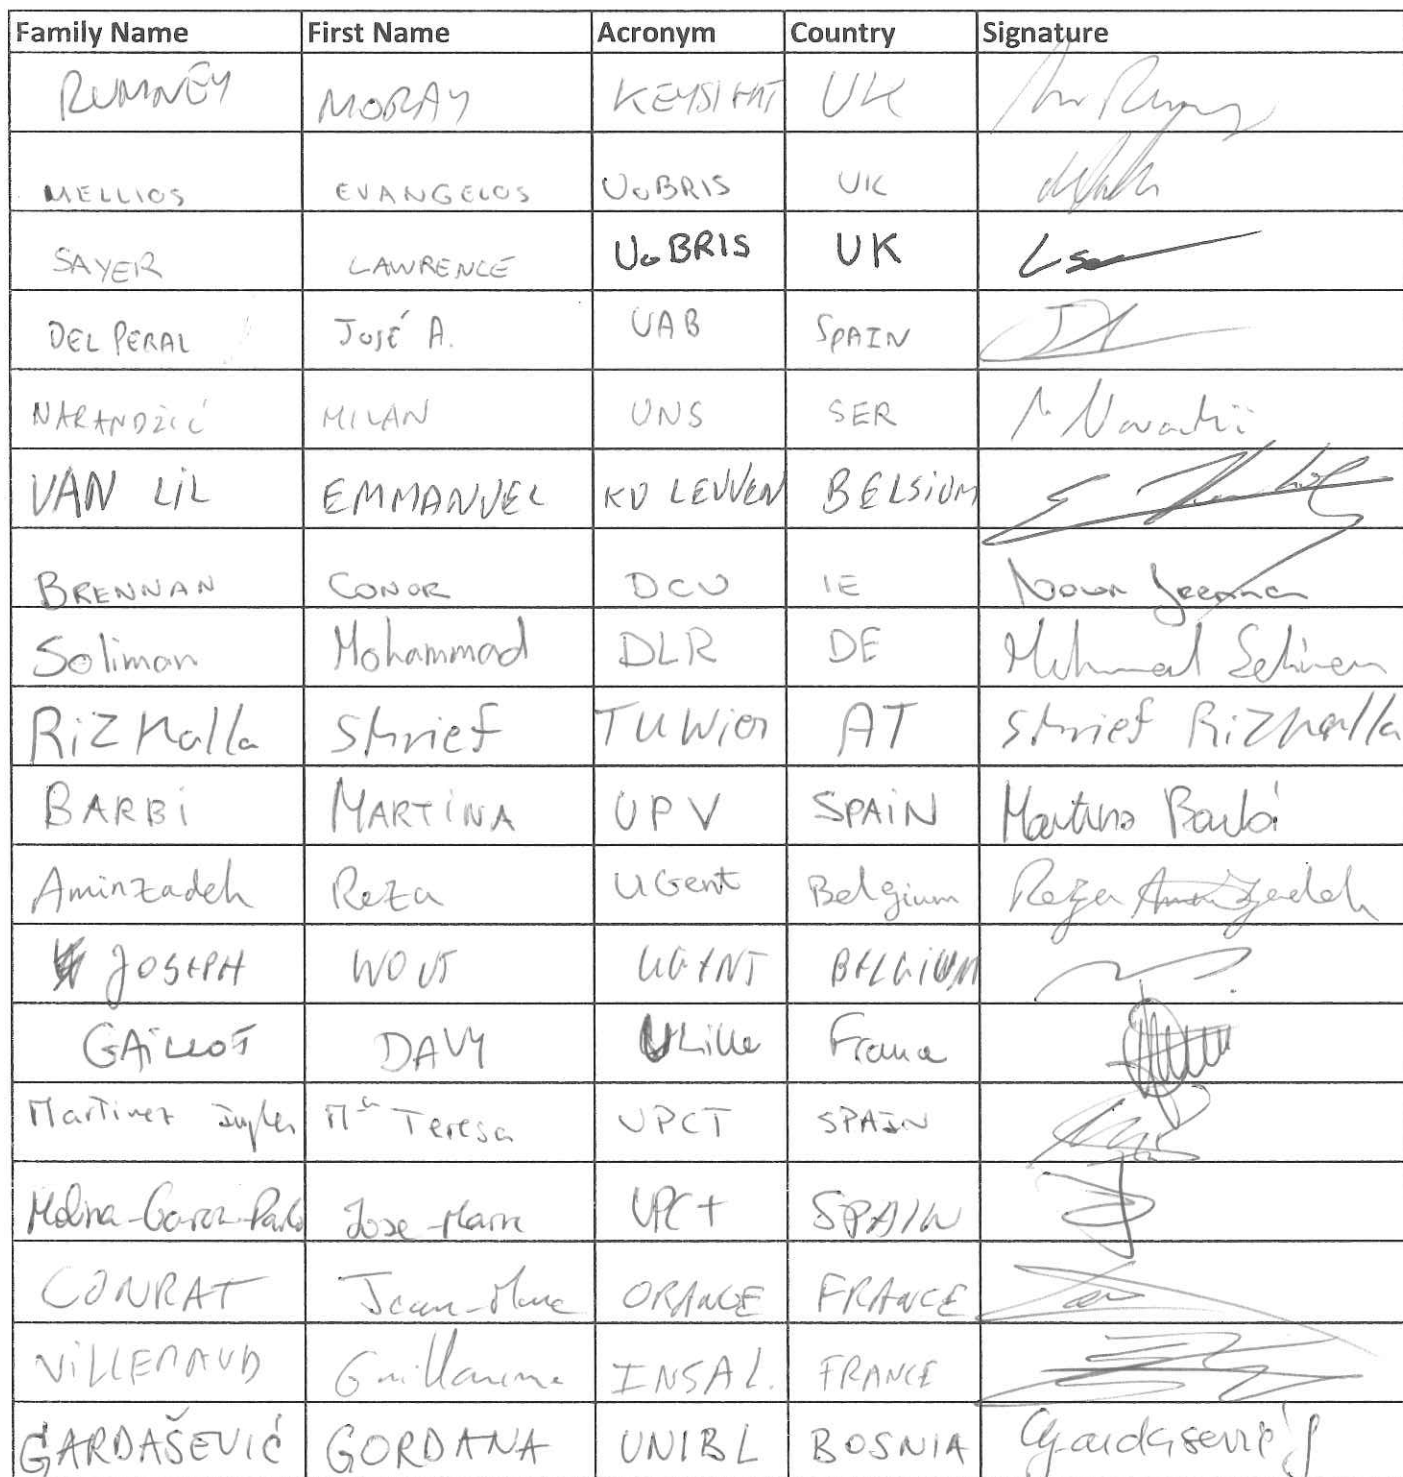 Family Name First Name Acronym Country Signature
RUMNEY MORAY KEYSIGHT UK
MELLIOS EVANGELOS UoBRIS UK
SAYER LAWRENCE UoBRIS UK
DEL PERAL JOSÉ A. UAB SPAIN
NARANDŽIĆ MILAN UNS SER
VAN LIL EMMANUEL KU LEUVEN BELGIUM
BRENNAN CONOR DCU IE
Soliman Mohammad DLR DE
Rizkalla Shrief TU Wien AT Shrief Rizkalla
BARBI MARTINA UPV SPAIN Martina Barbi
Aminzadeh Reza UGent Belgium Reza Aminzadeh
JOSEPH WOUT UGENT BELGIUM
GAILLOT DAVY ULille France
Martinez Ingles Mª Teresa UPCT SPAIN
Molina-Garcia-Pardo Jose-Maria UPCT SPAIN
CONRAT Jean-Marc ORANGE FRANCE
VILLEMAUD Guillaume INSAL. FRANCE
GARDAŠEVIĆ GORDANA UNIBL BOSNIA